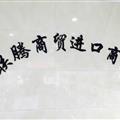 腾商贸进口商